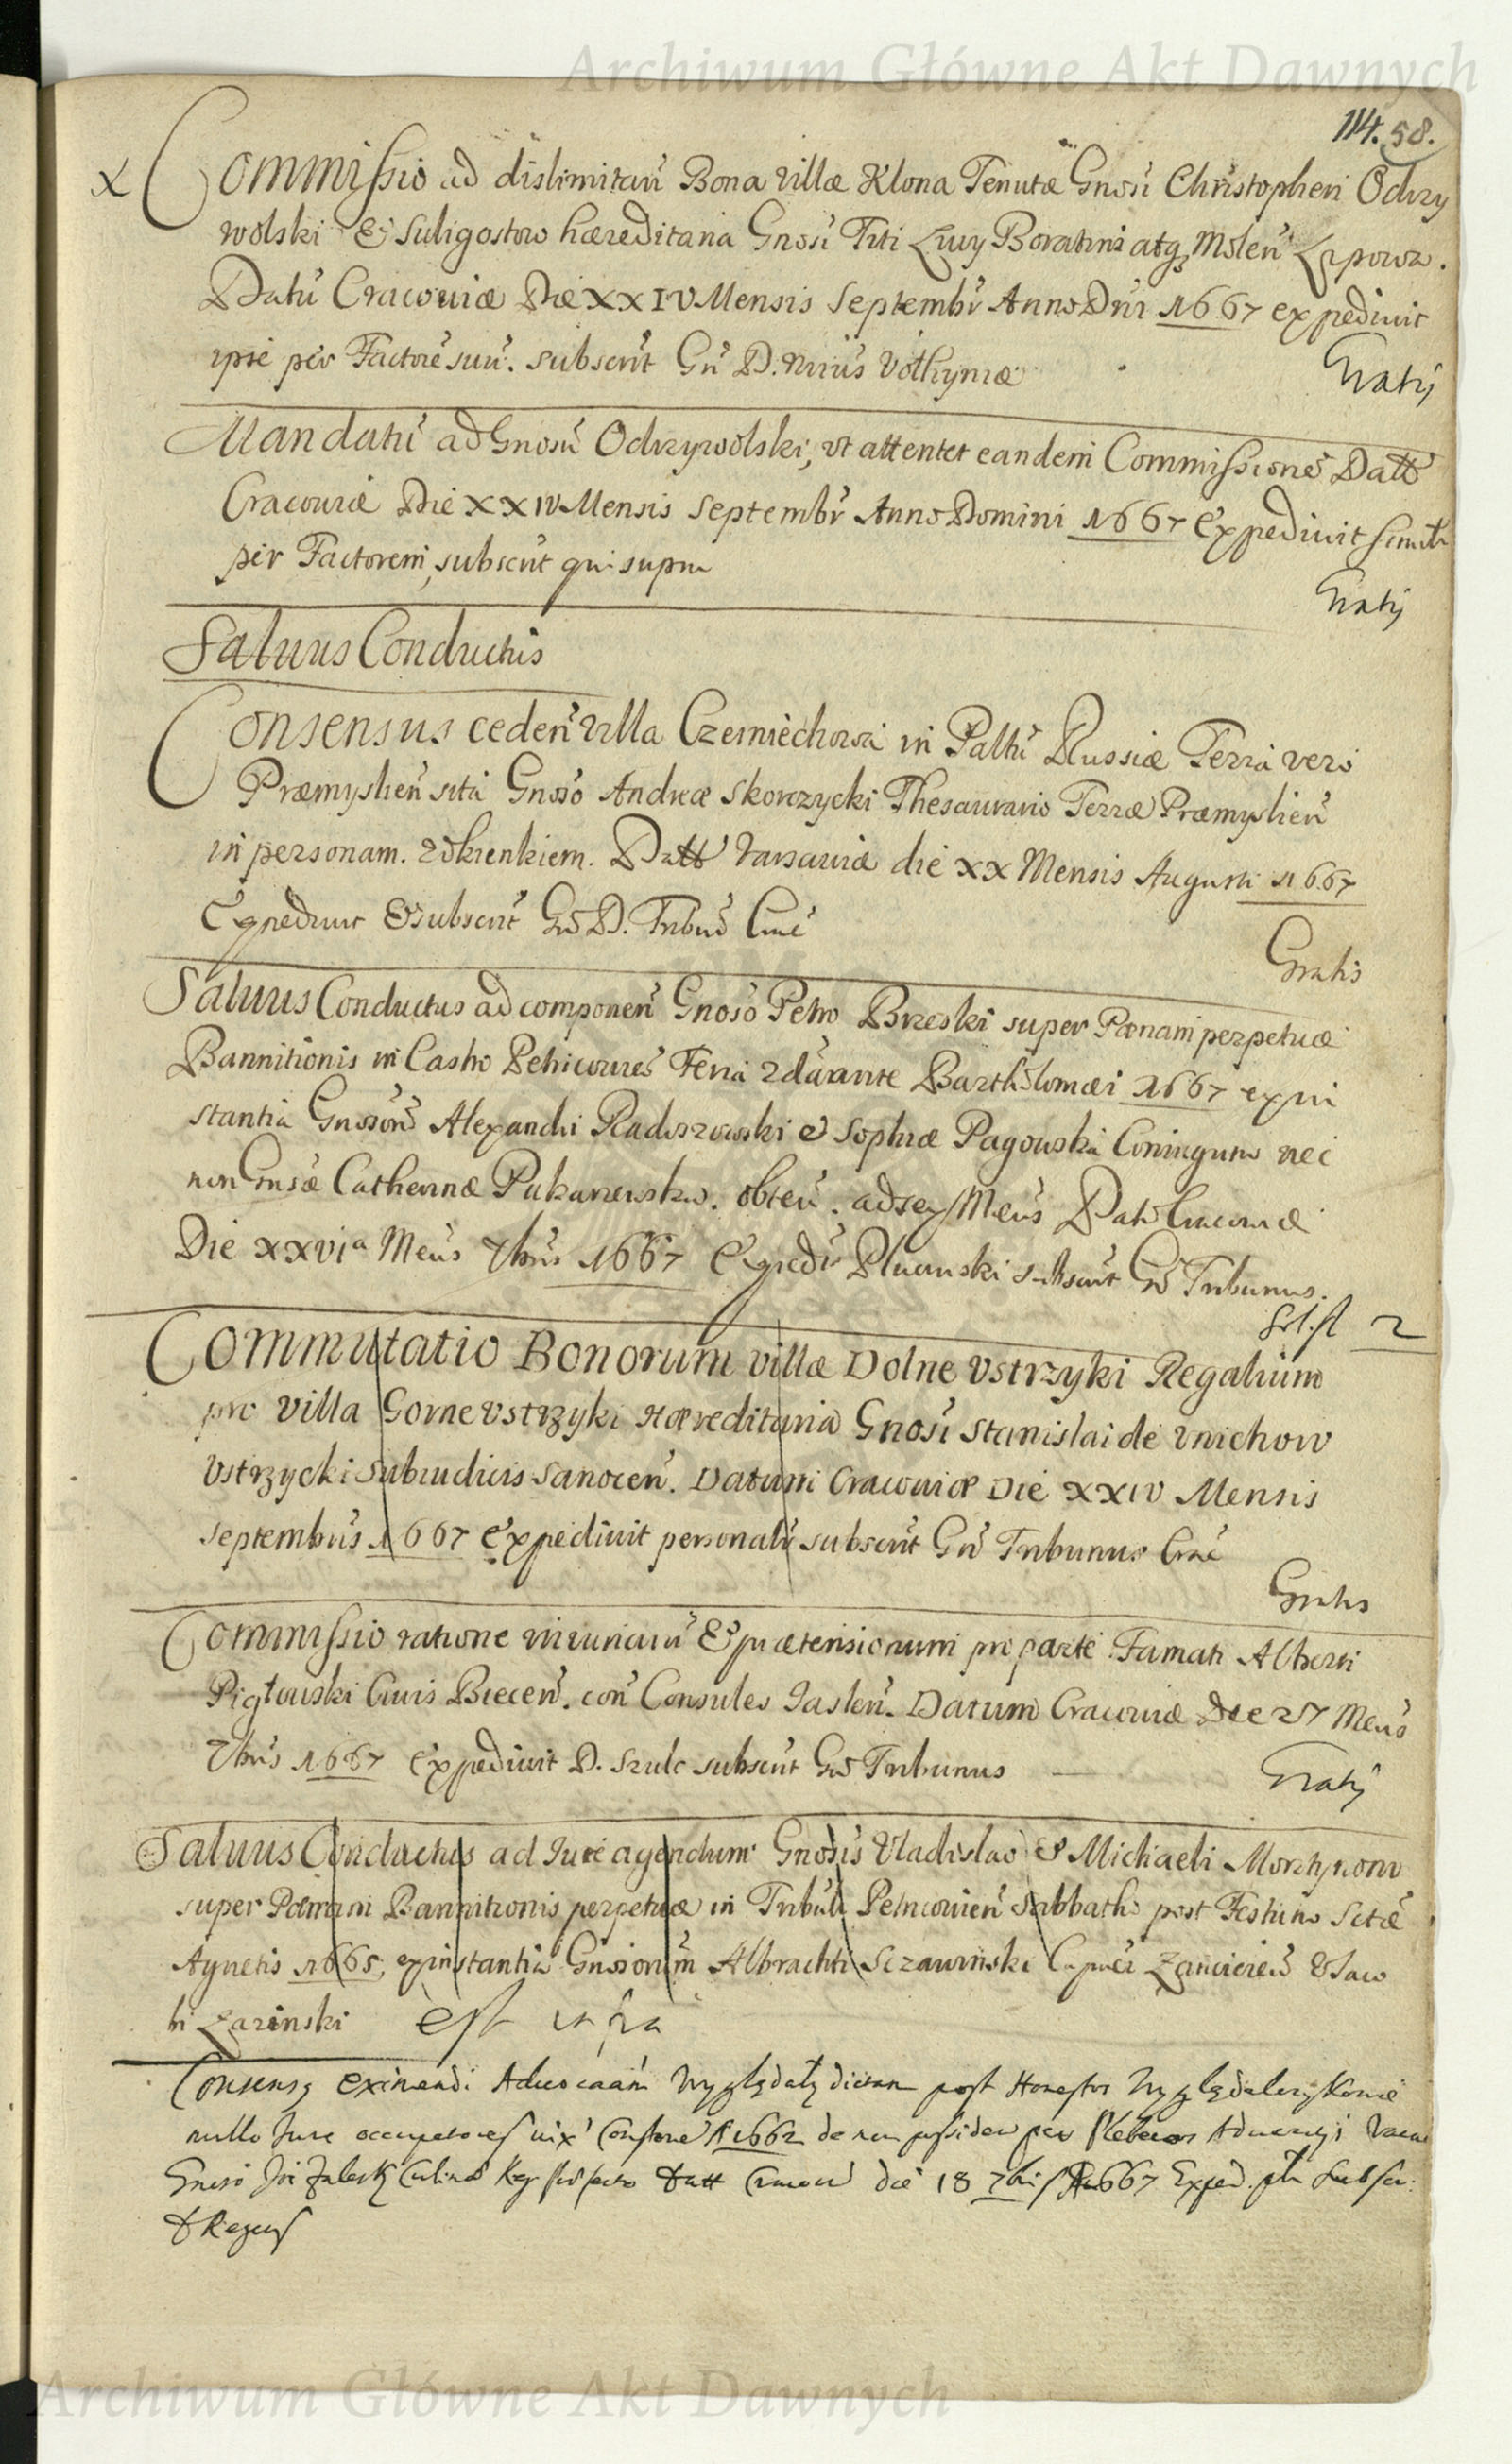 Archiwum Główne Akt Dawnych
114. 58.
X Commissio ad dislimitan̄ Bona Villæ Klona Tenutæ Gnosi Christopheri Odrzy
wolski & Suligostow hæreditaria Gnosi Titi Liuy Boratini atq̨ Molen̄
Datū Cracouiæ Die XXIV Mensis Septembr̄ Anno Dn̄i 1667 expediuit
ipse per Factorē suū. subscrit̄ Gn̄ D. Volhyniæ
Gratis
Mandatū ad Gnosū Odrzywolski, vt attentet eandem Commissionē Datt
Cracouiæ Die XXIV Mensis Septembr̄ Anno Domini 1667 Expediuit simitr
per Factorem, subscrit̄ qui supra
Gratis
Saluus Conductus
Consensus ceden̄ Villa Czerniechowa in Paltū Russiæ Terrâ vero
Præmyslien̄ sitâ Gnoso Andreæ Skorczycki Thesaurario Terræ Præmyslien̄
in personam. Datt Varsauiæ die XX Mensis Augusti 1667
Expediuit & subscrit̄ Gn̄ D. Tribun̄ Crac̄
Gratis
Saluus Conductus ad componen̄ Gnoso Petro Brzeski super Pœnam perpetuæ
Bannitionis in Castro Petricouien̄ Feria 2da ante Bartholomæi 1667 ex in
stantia Gnosorū Alexandri Radoszowski & Sophiæ Pagowski Coniugum nec
non Gnsæ Catherinæ obten̄. ad sex Men̄s Datū Cracouiæ
Die XXVIa Men̄s 7bris 1667 Expedi. subscrit̄ Gn̄ Tribunus.
Sol. fl 2
Commutatio Bonorum villæ Dolne Vstrzyki Regalium
pro villa Gorne Vstrzyki Hæreditaria Gnosi Stanislai de Vnichow
Vstrzycki Subiudicis Sanocen̄. Datum Cracouiæ Die XXIV Mensis
Septembris 1667 Expediuit personalr̄ subscrit̄ Gn̄ Tribunus Crac̄
Gratis
Commissio ratione iniuriarū & prætensionum pro parte Famati Alberti
Piątowski Ciuis Biecen̄. con̄ Consules Iaslen̄. Datum Cracouiæ Die 27 Men̄s
7bris 1667 Expediuit D. Szulc subscrit̄ Gn̄ Tribunus
Gratis
Saluus Conductus ad Iure agendum Gnosis Vladislao & Michaeli Morstynow
super Pœnam Bannitionis perpetuæ in Tribūli Petricouien̄ Sabbatho post Festum Sctæ
Agnetis 1665, ex instantia Gnosorum Albrachti Sczawinski & Iaco
bi Zarinski est infra
Consensq̨ eximendi Aduocaām dictam post Honestos
nullo Iure occupatores iux̄ Constone 1662 de non possiden per Plebeios
Gnoso Datt Cracou die 18 7bris Ao 1667 Exped. subscr.
Archiwum Główne Akt Dawnych